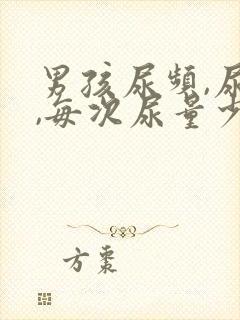 男孩尿频,尿
,每次尿量少
方枣